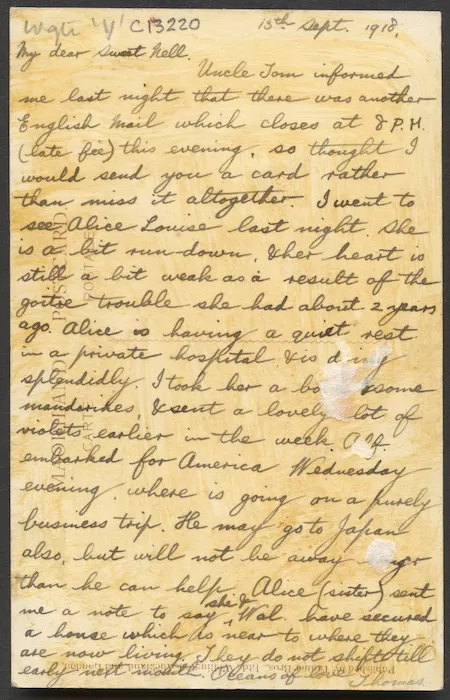 Wgtn 'Y' C13220
13th Sept. 1918.
My dear Sweet Nell.
Uncle Tom informed
me last night that there was another
English Mail which closes at 8 P.M.
(late fee) this evening, so thought I
would send you a card rather
than miss it altogether. I went to
see Alice Louise last night. She
is a bit run-down, & her heart is
still a bit weak as a result of the
goitre trouble she had about 2 years
ago. Alice is having a quiet rest
in a private hospital & is d ing
splendidly. I took her a bo some
manderines, & sent a lovely lot of
violets earlier in the week. Alf.
embarked for America Wednesday
evening, where is going on a purely
business trip. He may go to Japan
also, but will not be away ger
than he can help. Alice (sister) sent
me a note to say she & Wal. have secured
a house which is near to where they
are now living. They do not shift till
early next month. Oceans of love Thomas.
POST CARD